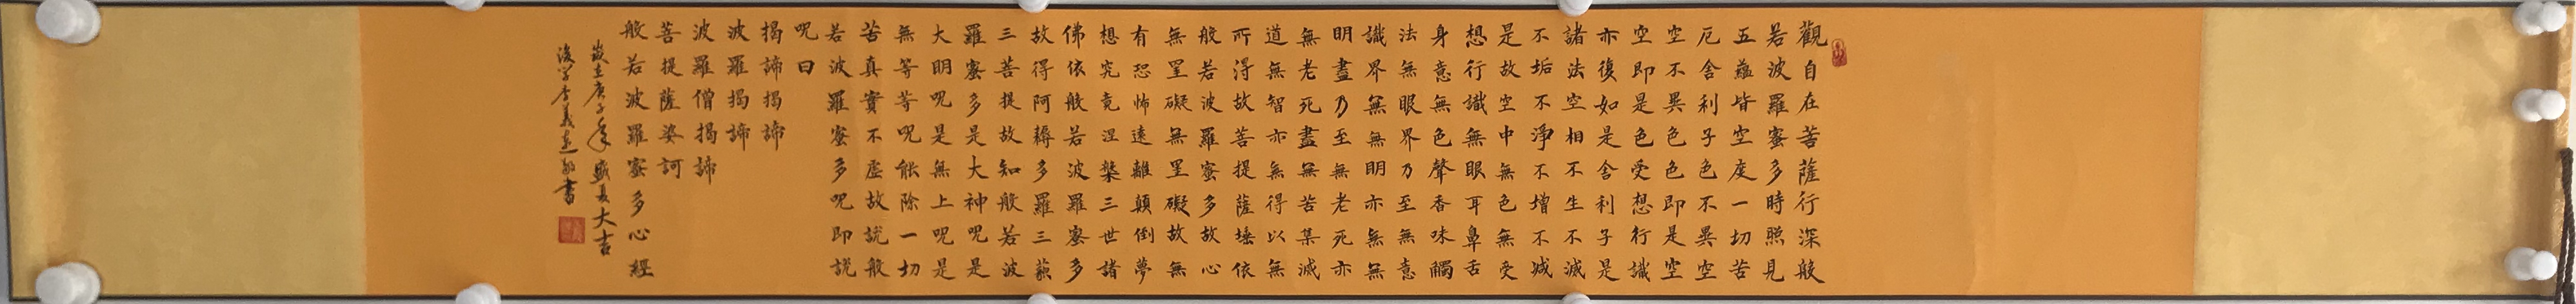 觀自在菩薩行深般
若波羅蜜多時照見
五蘊皆空度一切苦
厄舍利子色不異空
空不異色色即是空
空即是色受想行識
亦復如是舍利子是
諸法空相不生不滅
不垢不淨不增不減
是故空中無色無受
想行識無眼耳鼻舌
身意無色聲香味觸
法無眼界乃至無意
識界無無明亦無無
明盡乃至無老死亦
無老死盡無苦集滅
道無智亦無得以無
所得故菩提薩埵依
般若波羅蜜多故心
無罣礙無罣礙故無
有恐怖遠離顛倒夢
想究竟涅槃三世諸
佛依般若波羅蜜多
故得阿耨多羅三藐
三菩提故知般若波
羅蜜多是大神呪是
大明呪是無上呪是
無等等呪能除一切
苦真實不虛故說般
若波羅蜜多呪即說
呪曰
揭諦揭諦
波羅揭諦
波羅僧揭諦
菩提薩婆訶
般若波羅蜜多心經
歲在庚子年盛夏大吉
後學李義敬書